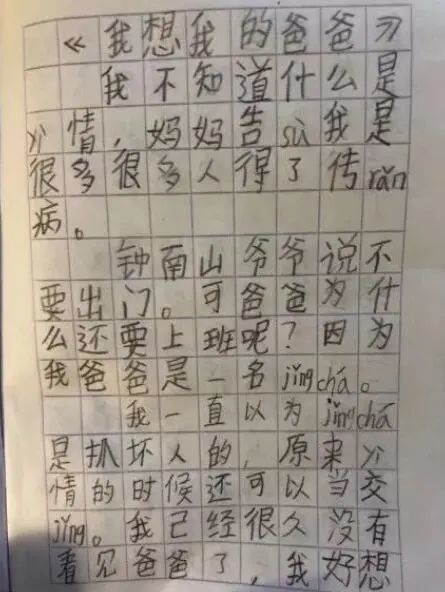 《我想我的爸爸》
我不知道什么是
y情，妈妈告sù我是
很多很多人得了传rǎn
病。
钟南山爷爷说不
要出门。可爸爸为什
么还要上班呢？因为
我爸爸是一名jǐngchá。
我一直以为jǐngchá
是抓坏人的，原来y
情的时候还可以当交
jǐng。我已经很久没有
看见爸爸了，我好想